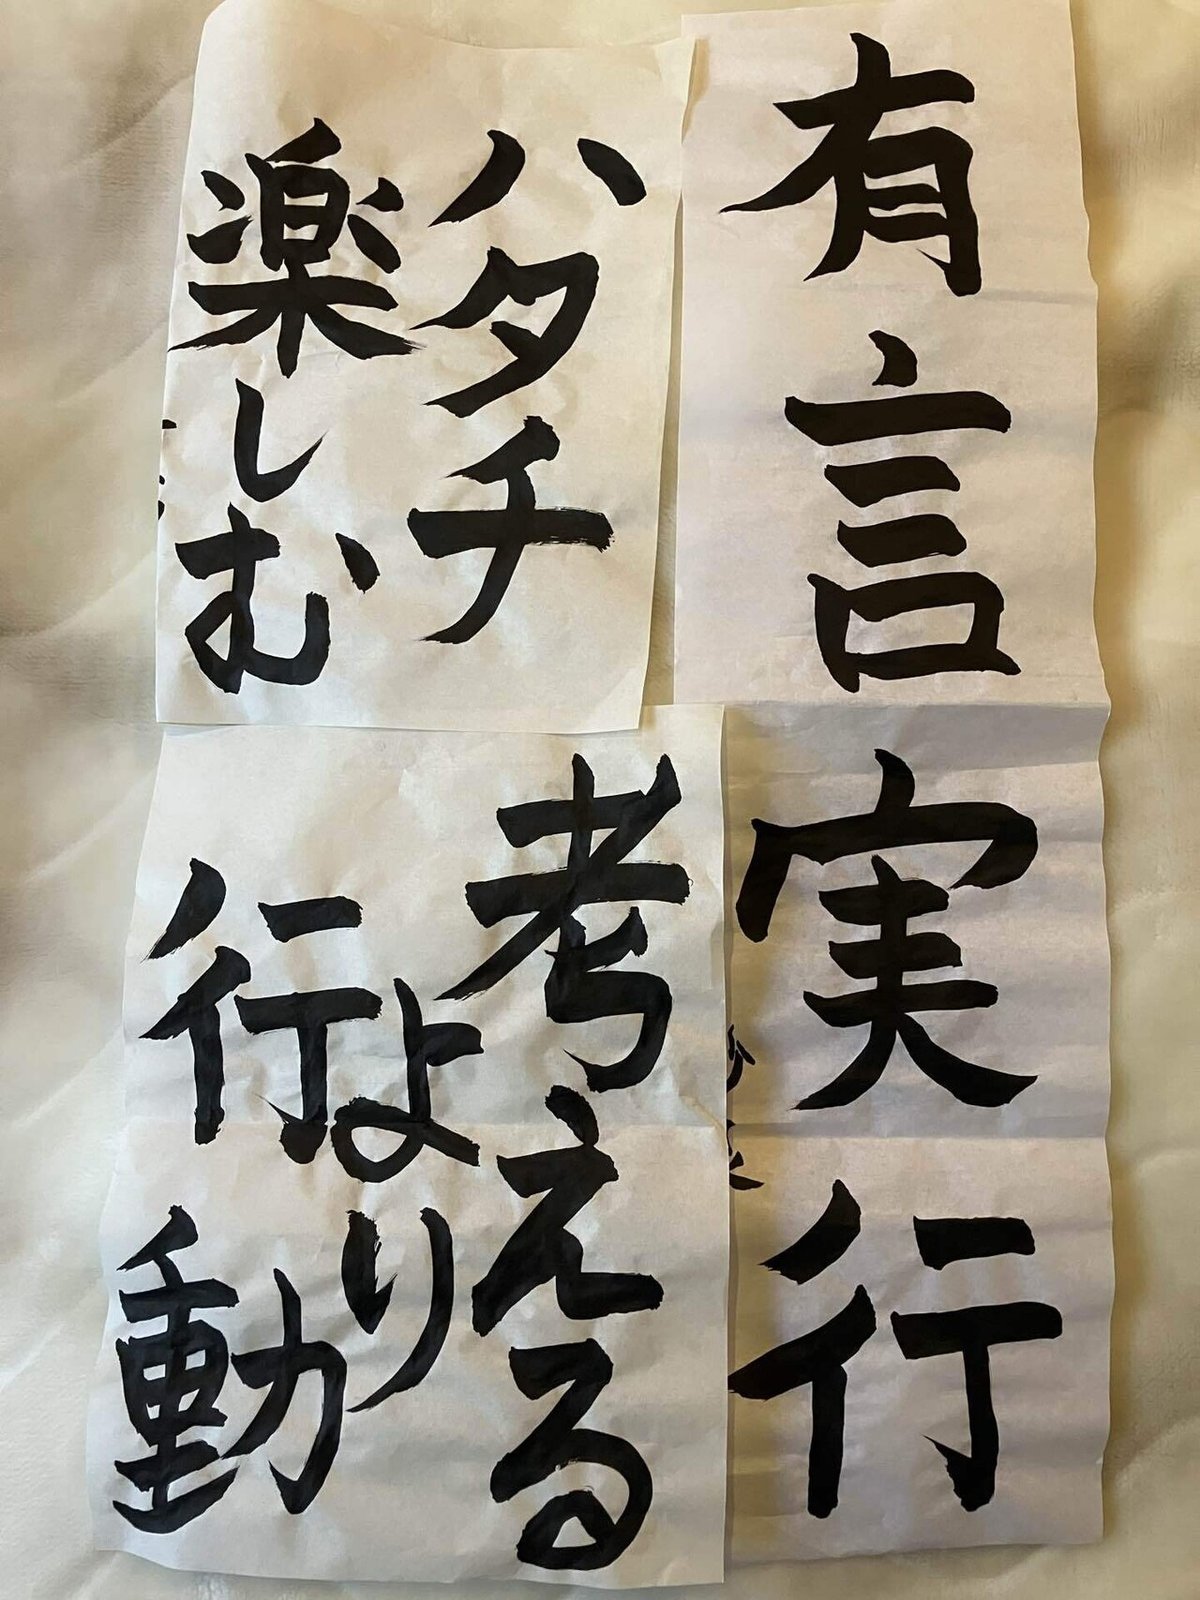 有言実行
ハタチ
楽しむ
考える
より
行動